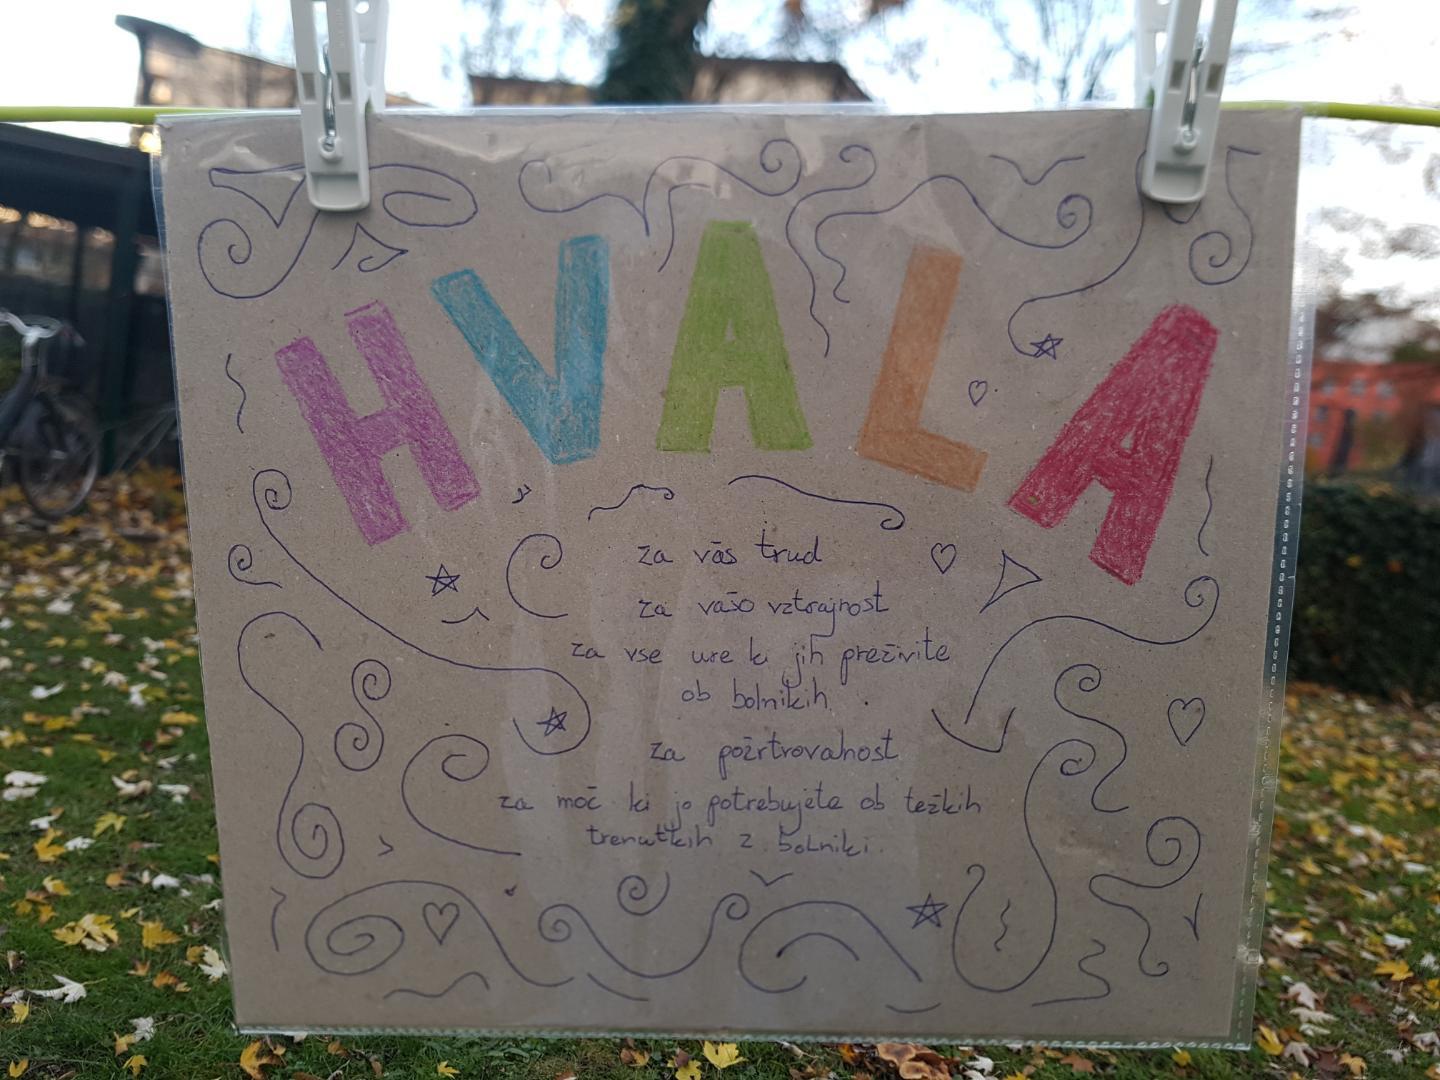 HVALA
za vaš trud
za vašo vztrajnost
za vse ure ki jih preživite
ob bolnikih.
za požrtrovalnost
za moč ki jo potrebujete ob težkih
trenutkih z bolniki.